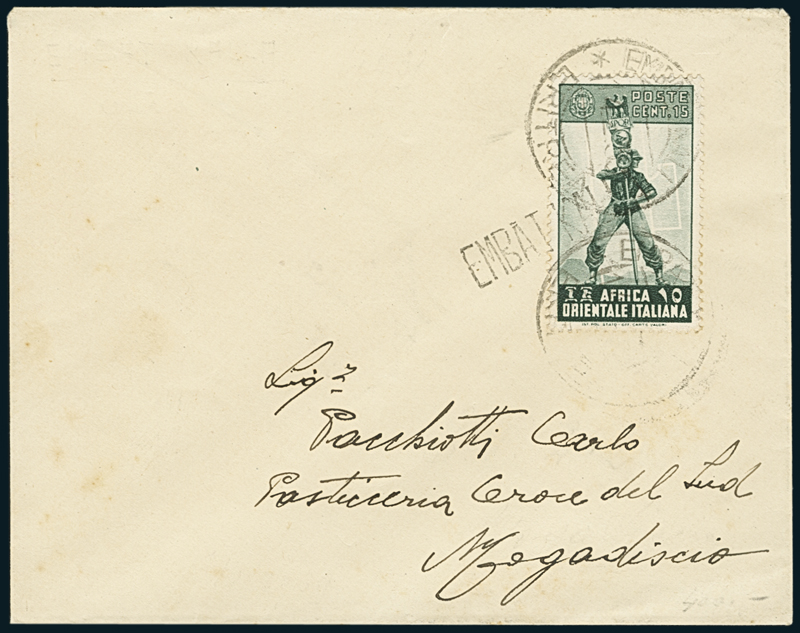 EMBAT
ERITREA
POSTE
CENT. 15
፲፭ AFRICA ١٥
ORIENTALE ITALIANA
IST. POL. STATO - OFF. CARTE VALORI
Sig.r
Pacchiotti Carlo
Pasticceria Croce del Sud
Mogadiscio